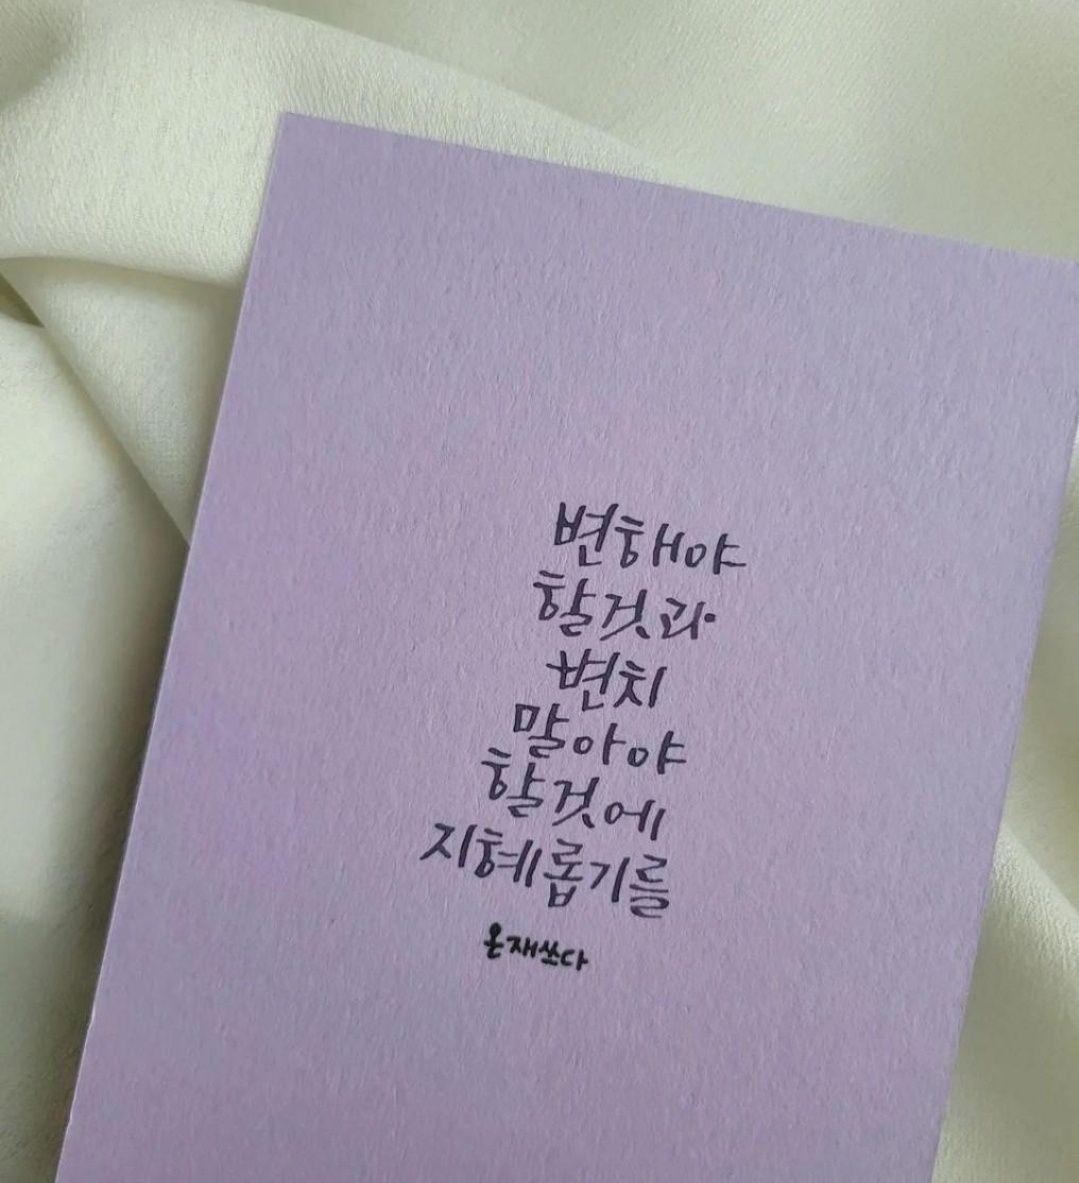 변해야
할것과
변치
말아야
할것에
지혜롭기를
온재쓰다